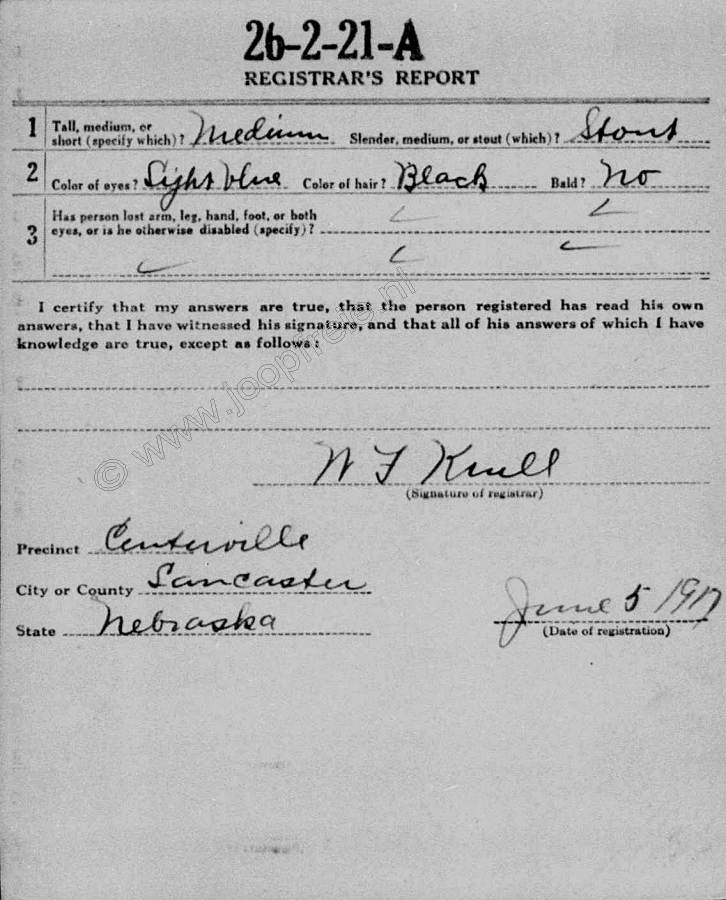 26-2-21-A
REGISTRAR'S REPORT
1 Tall, medium, or short (specify which)? Medium Slender, medium, or stout (which)? Stout
2 Color of eyes? Light blue Color of hair? Black Bald? No
3 Has person lost arm, leg, hand, foot, or both
eyes, or is he otherwise disabled (specify)?
I certify that my answers are true, that the person registered has read his own
answers, that I have witnessed his signature, and that all of his answers of which I have
knowledge are true, except as follows:
© www.joopfreie.nl
W F Krull
(Signature of registrar)
Precinct Centerville
City or County Lancaster
State Nebraska
June 5 1917
(Date of registration)